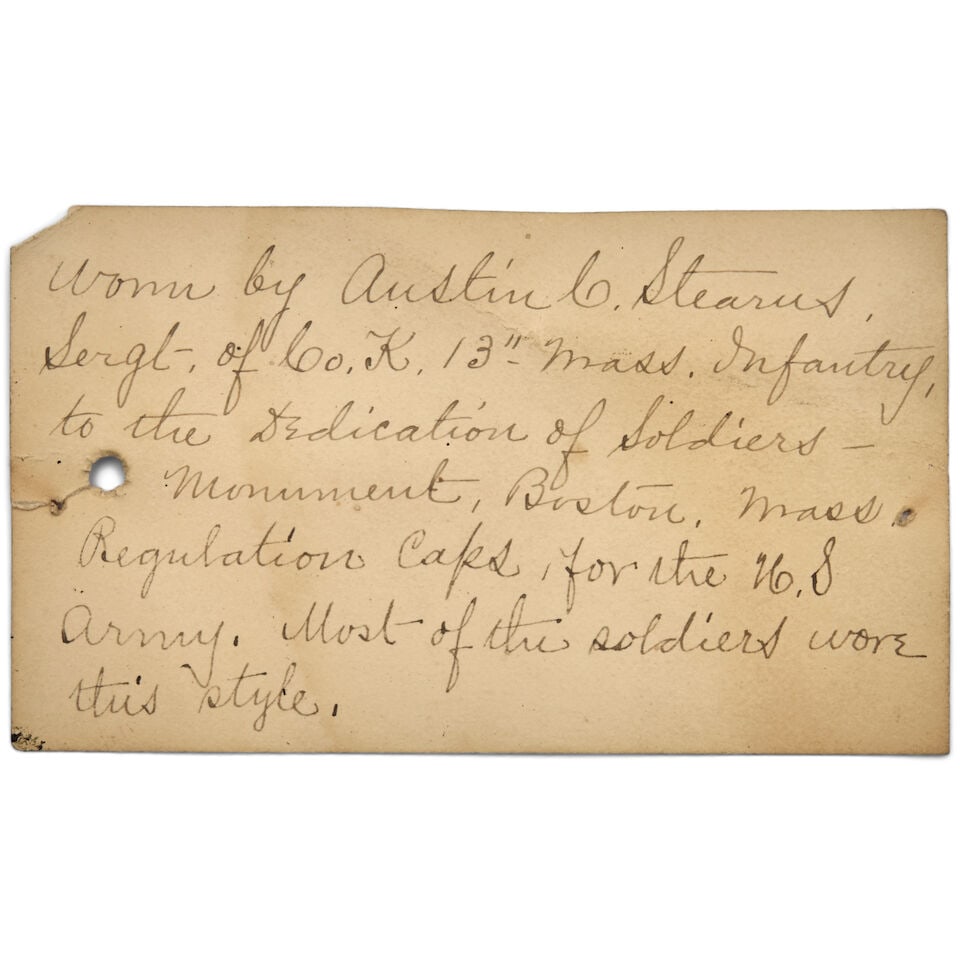 Worn by Austin C. Stearns,
Sergt. of Co. K, 13" Mass. Infantry,
to the Dedication of Soldiers –
Monument, Boston, Mass.
Regulation Caps, for the U.S
Army. Most of the soldiers wore
this style.